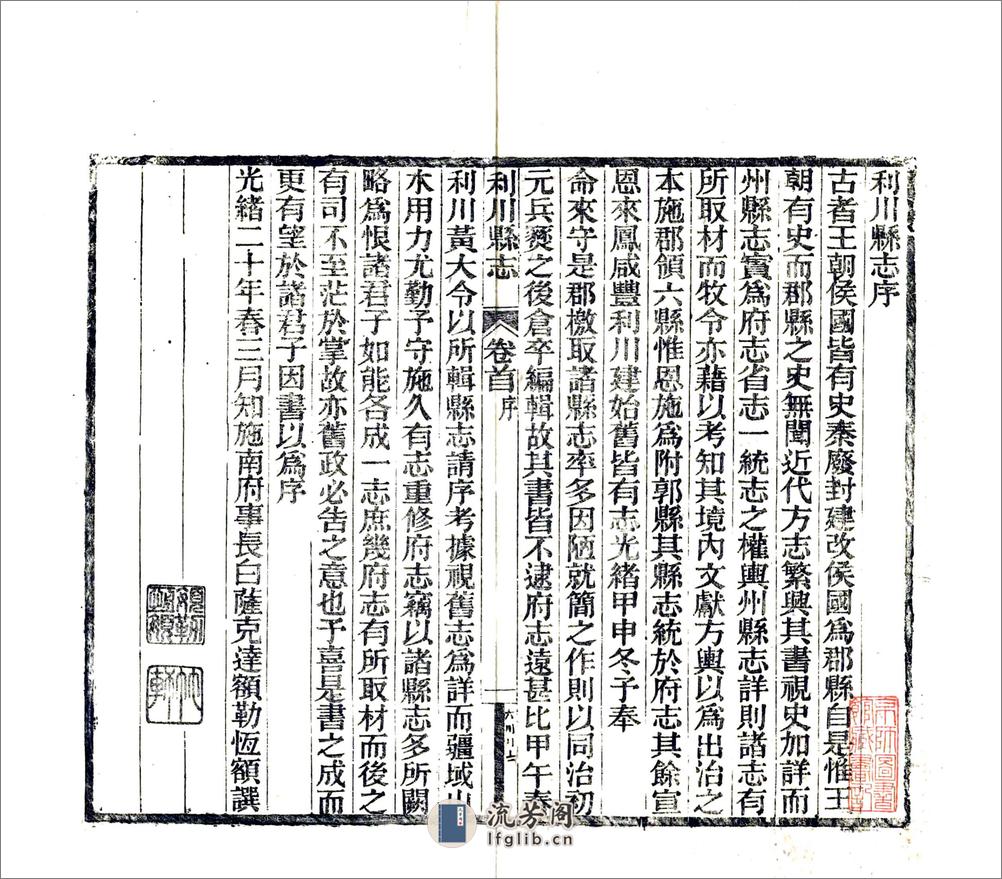 利川縣志序
古者王朝侯國皆有史秦廢封建改侯國為郡縣自是惟王
朝有史而郡縣之史無聞近代方志繁興其書視史加詳而
州縣志實為府志省志一統志之權輿州縣志詳則諸志有
所取材而牧令亦藉以考知其境內文獻方輿以為出治之
本施郡領六縣惟恩施為附郭縣其縣志統於府志其餘宣
恩來鳳咸豐利川建始舊皆有志光緒甲申冬予奉
命來守是郡檄取諸縣志率多因陋就簡之作則以同治初
元兵燹之後倉卒編輯故其書皆不逮府志遠甚比甲午春
利川縣志 卷首 序
利川黃大令以所輯縣志請序考據視舊志為詳而疆域山
水用力尤勤予守施久有志重修府志竊以諸縣志多所闕
略為恨諸君子如能各成一志庶幾府志有所取材而後之
有司不至茫於掌故亦舊政必告之意也予喜是書之成而
更有望於諸君子因書以為序
光緒二十年春三月知施南府事長白薩克達額勒恆額譔
流芳阁
lfglib.cn